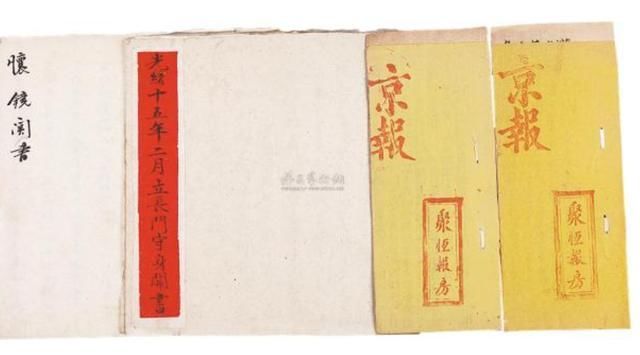 懷鏡鬮書
光緒十五年二月立長門守身鬮書
京報
聚恒報房
京報
聚恒報房